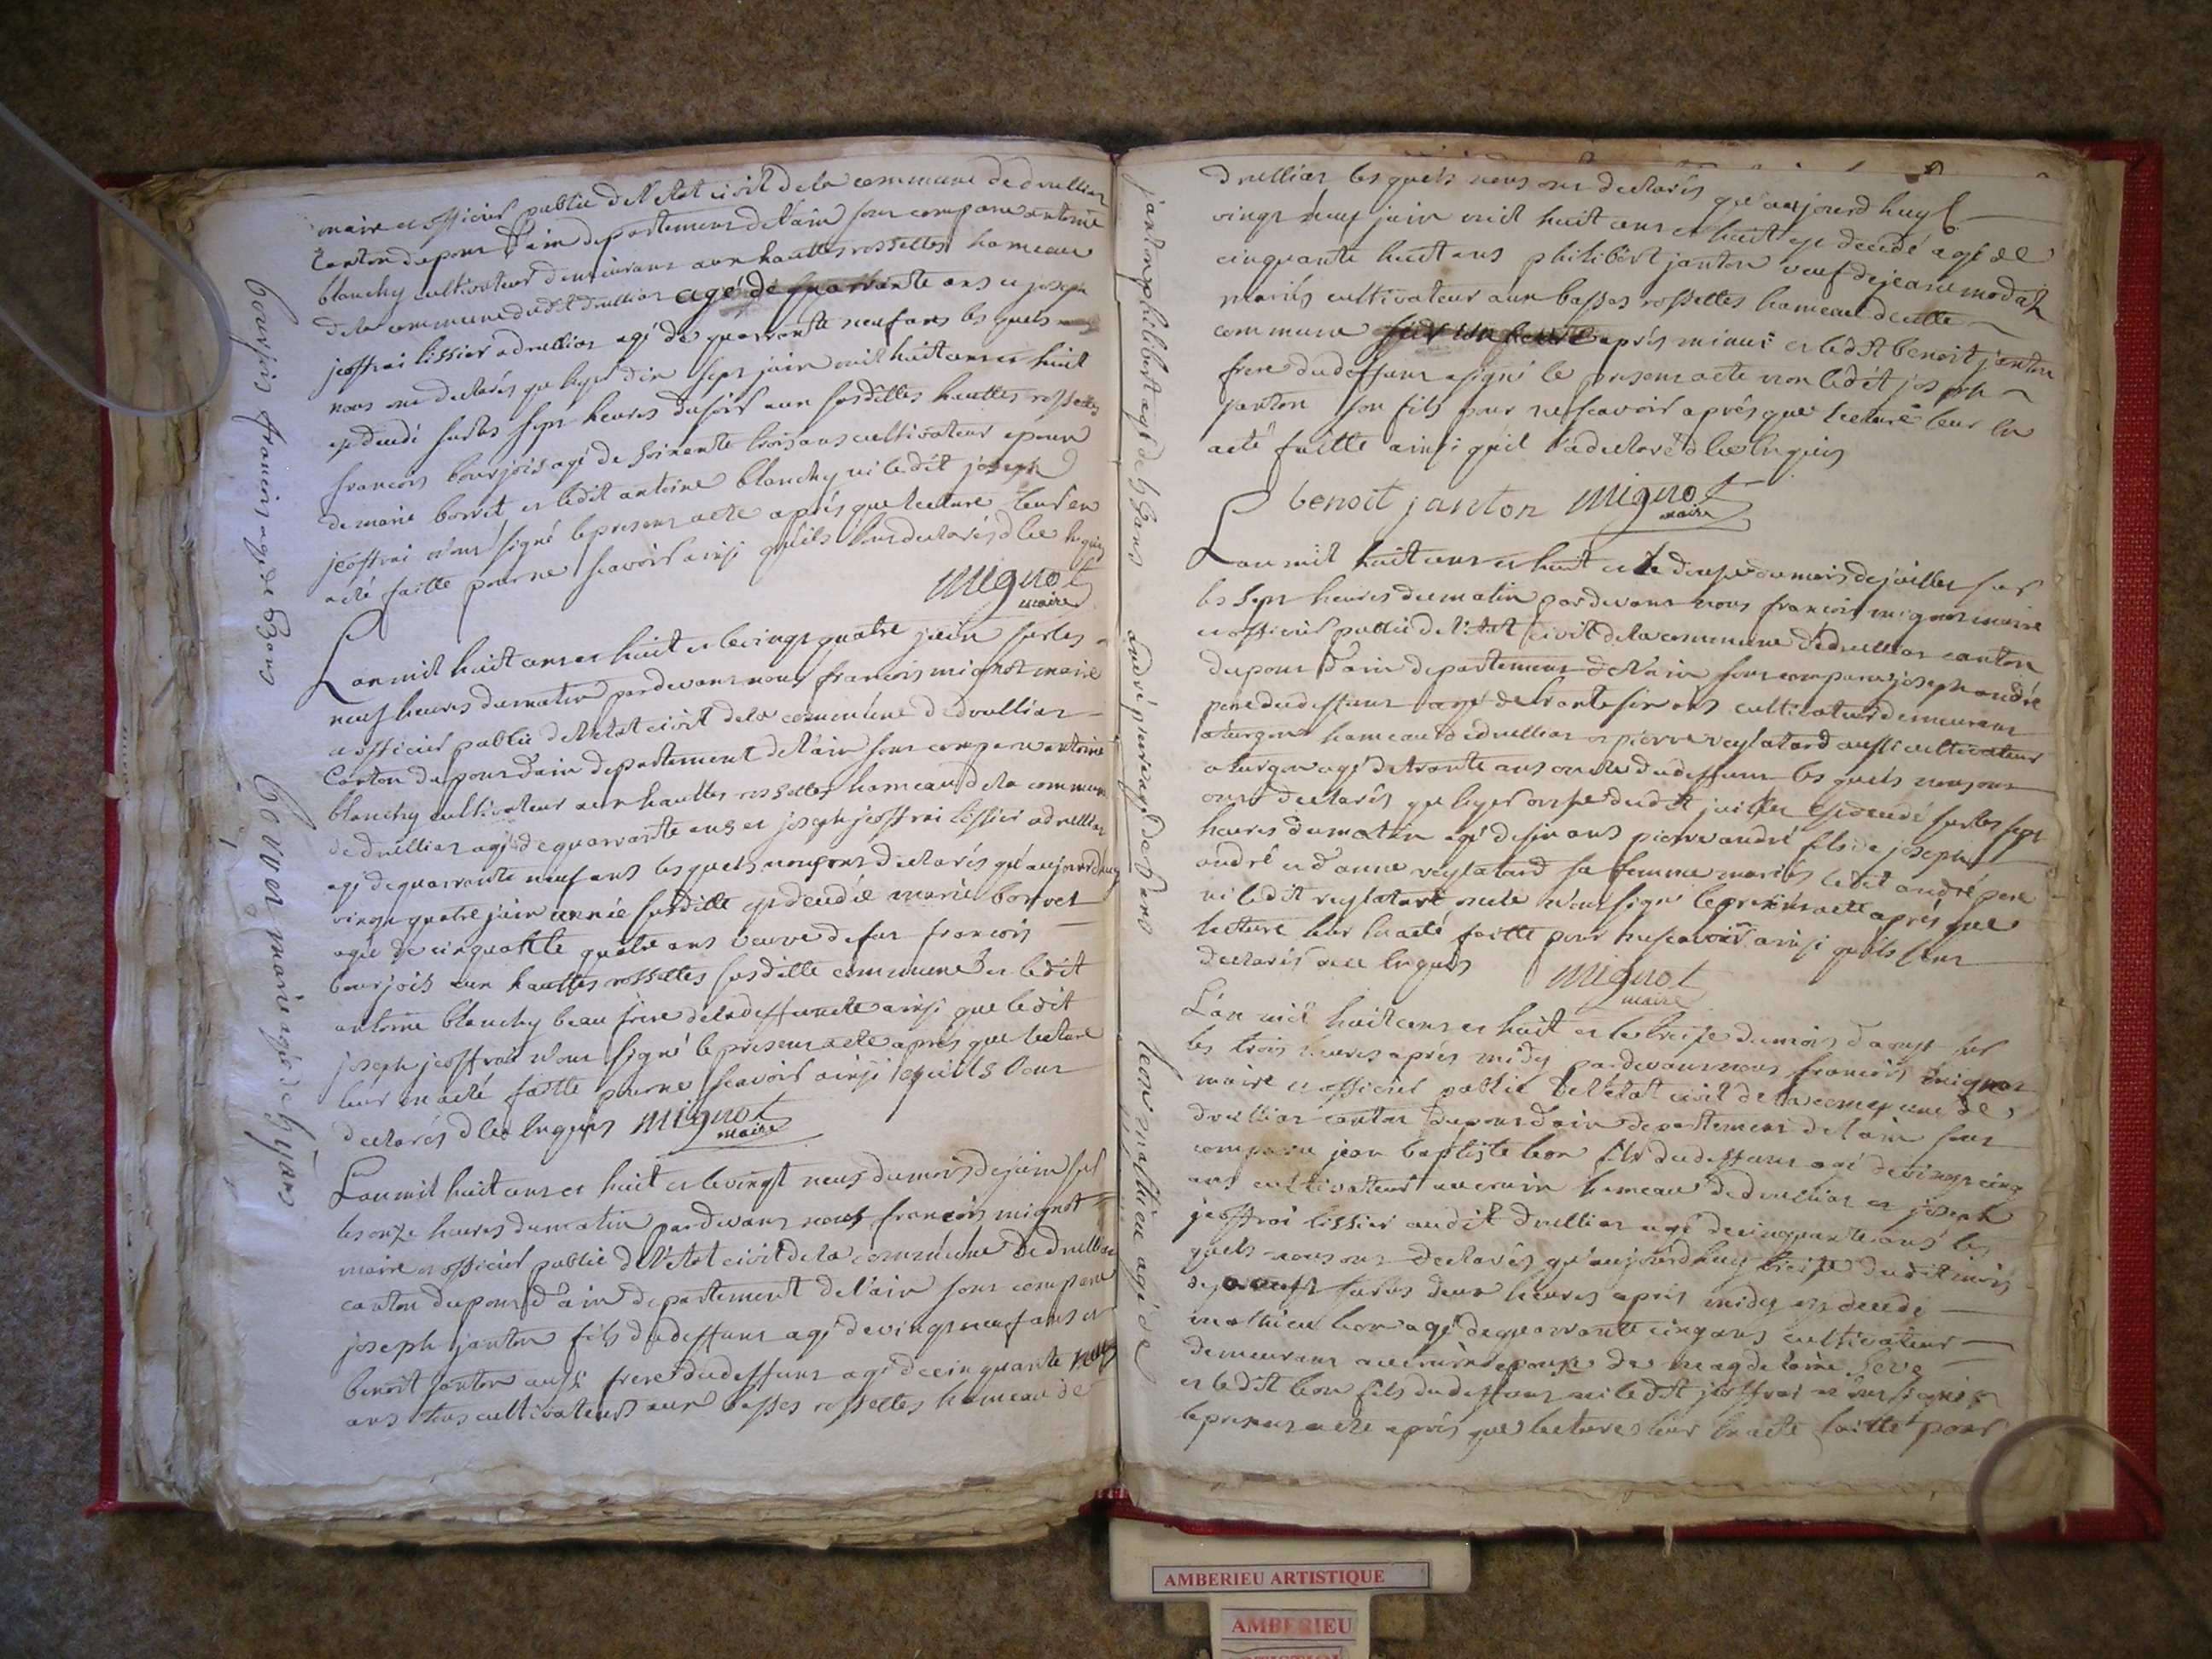 maire et officier public de l'etat civil de la commune de druillias
Canton du pont d'ain departement de l'ain sont comparu antoine
blanchy cultivateur demeurant aux hauttes rosselles hameau
de la commune dudit druillias agé de quarrante ans et joseph
jeoffrai tissier a druillias agé de quarrante neuf ans les quels
nous ont declarés que hyer dix sept juin mil huit cent et huit
est decedé sur les sept heures du soir aux susdittes hauttes rosselles
francois bourjois agé de soixente trois ans cultivateur epoux
de marie borret et ledit antoine blanchy ni ledit joseph
jeoffrai n'ont signé le present acte aprés que lecture leur en
a eté faitte pour ne scavoir ainsi qu'ils l'ont declarés de ce requis
mignot
maire
L'an mil huit cent et huit et le vingt quatre juin sur les
neuf heures du matin pardevant nous francois mignot maire
et officier public de l'etat civil de la commune de druillias
Canton du pont d'ain departement de l'ain sont comparu antoine
blanchy cultivateur aux hauttes rosselles hameau de la commune
de druillias agé de quarrante ans et joseph jeoffrai tissier a druillias
agé de quarrante neuf ans les quels nous ont declarés qu'aujourd'huy
vingt quatre juin année susditte est decedée marie borret
agée de cinquante quatre ans veuve de feu francois
bourjois aux hauttes rosselles susditte commune et ledit
antoine blanchy beau frere de la deffuncte ainsi que ledit
joseph jeoffrai n'ont signé le present acte aprés que lecture
leur en a eté faitte pour ne scavoir ainsi qu'ils l'ont
declarés de ce requis mignot
maire
L'an mil huit cent et huit et le vingt neuf du mois de juin sur
les onze heures du matin pardevant nous francois mignot
maire et officier public de l'etat civil de la commune de druillias
canton du pont d'ain departement de l'ain sont comparu
joseph janton fils du deffunt agé de vingt neuf ans et
benoit janton aussi frere du deffunt agé de cinquante neuf
ans tous cultivateurs aux basses rosselles hameau de
bourjois francois agé de 63 ans
borret marie agée de 54 ans
druillias les quels nous ont declarés qu'aujourd'huy
vingt neuf juin mil huit cent et huit est decedé agé de
cinquante huit ans philibert janton veuf de jeanne
mariés cultivateur aux basses rosselles hameau de cette
commune aprés minuit et ledit benoit janton
frere du deffunt a signé le present acte non ledit joseph
janton son fils pour ne scavoir aprés que lecture leur en
a eté faitte ainsi qu'il l'a declaré de ce requis
benoit janton mignot
maire
L'an mil huit cent et huit et le douze du mois de juillet sur
les sept heures du matin pardevant nous francois mignot maire
et officier public de l'etat civil de la commune de druillias canton
du pont d'ain departement de l'ain sont comparu joseph andré
pere du deffunt agé de trante six ans cultivateur demeurant
a turgon hameau de druillias et pierre veylatard aussi cultivateur
a turgon agé de trante ans oncle du deffunt les quels nous ont
ont declarés que hyer onze dudit juillet est decedé sur les sept
heures du matin agé de six ans pierre andré fils de joseph
andré et d'anne veylatard sa femme mariés ledit andré pere
ni ledit veylatard oncle n'ont signé le present acte aprés que
lecture leur en a eté faitte pour ne scavoir ainsi qu'ils l'ont
declarés de ce requis mignot
maire
L'an mil huit cent et huit et le treize du mois d'aoust sur
les trois heures aprés midy pardevant nous francois mignot
maire et officier public de l'etat civil de la commune de
druillias canton du pont d'ain departement de l'ain sont
comparu jean baptiste leon fils du deffunt agé de vingt cinq
ans cultivateur hameau de druillias et joseph
jeoffrai tissier audit druillias agé de cinquante ans les
quels nous ont declarés qu'aujourd'huy treize dudit mois
d'aoust sur les deux heures aprés midy est decedé
mathieu leon agé de quarrante cinq ans cultivateur
demeurant epoux de magdelaine
et ledit leon fils du deffunt ni ledit jeoffrai n'ont signés
le present acte aprés que lecture leur en a eté faitte pour
janton philibert agé de 58 ans
andré pierre agé de 6 ans
leon mathieu agé de
AMBERIEU ARTISTIQUE
AMBERIEU